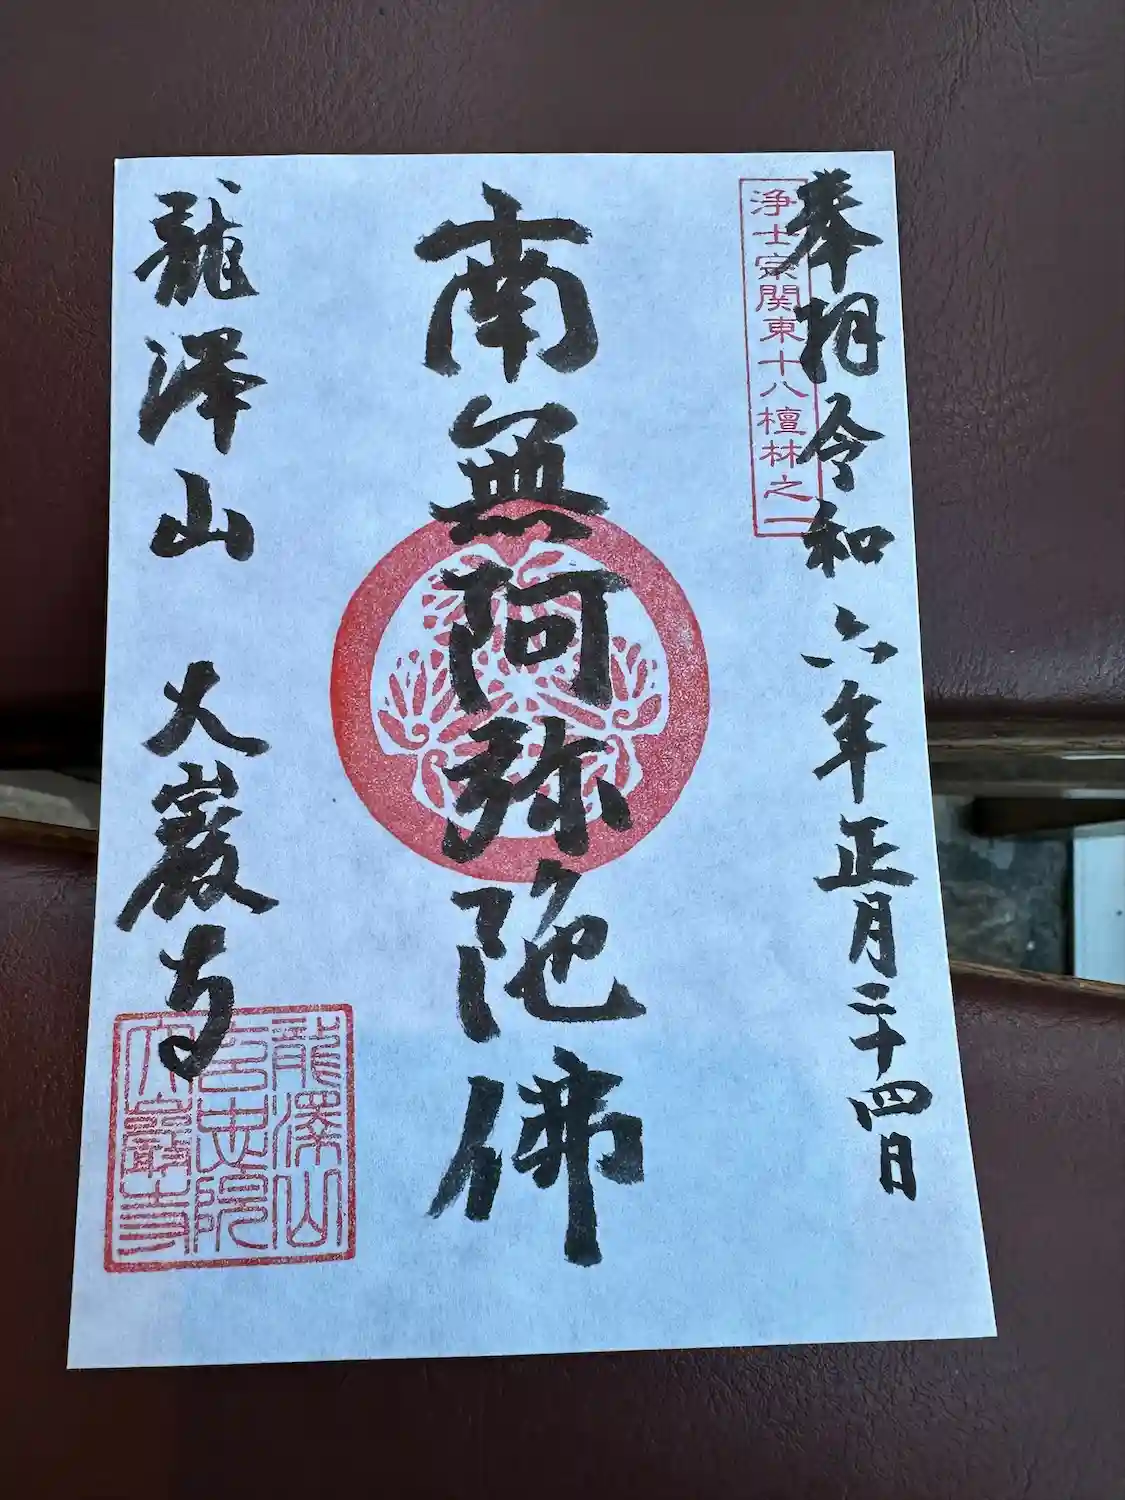 奉拝 令和六年正月二十四日
浄土宗関東十八檀林之一
南無阿弥陀佛
龍澤山 大巖寺
龍澤山
玄忠院
大巖寺